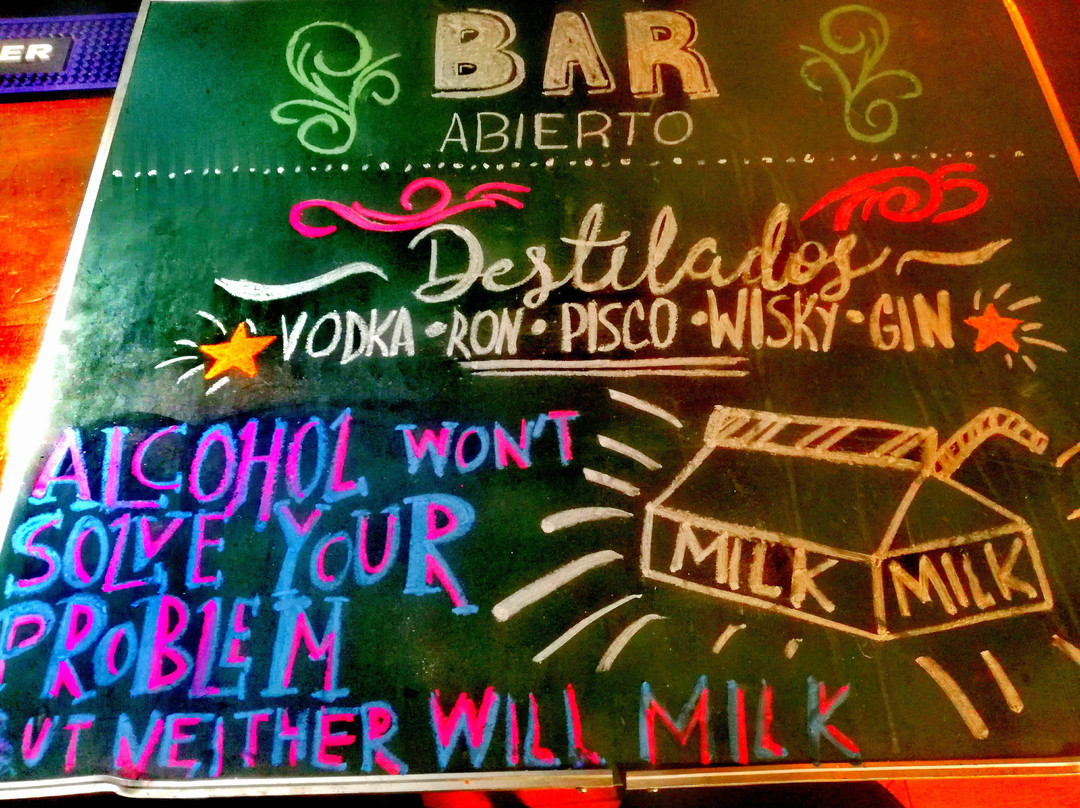 ER
BAR
ABIERTO
Destilados
VODKA • RON • PISCO • WISKY • GIN
ALCOHOL WON'T
SOLVE YOUR
PROBLEM
BUT NEITHER WILL MILK
MILK MILK